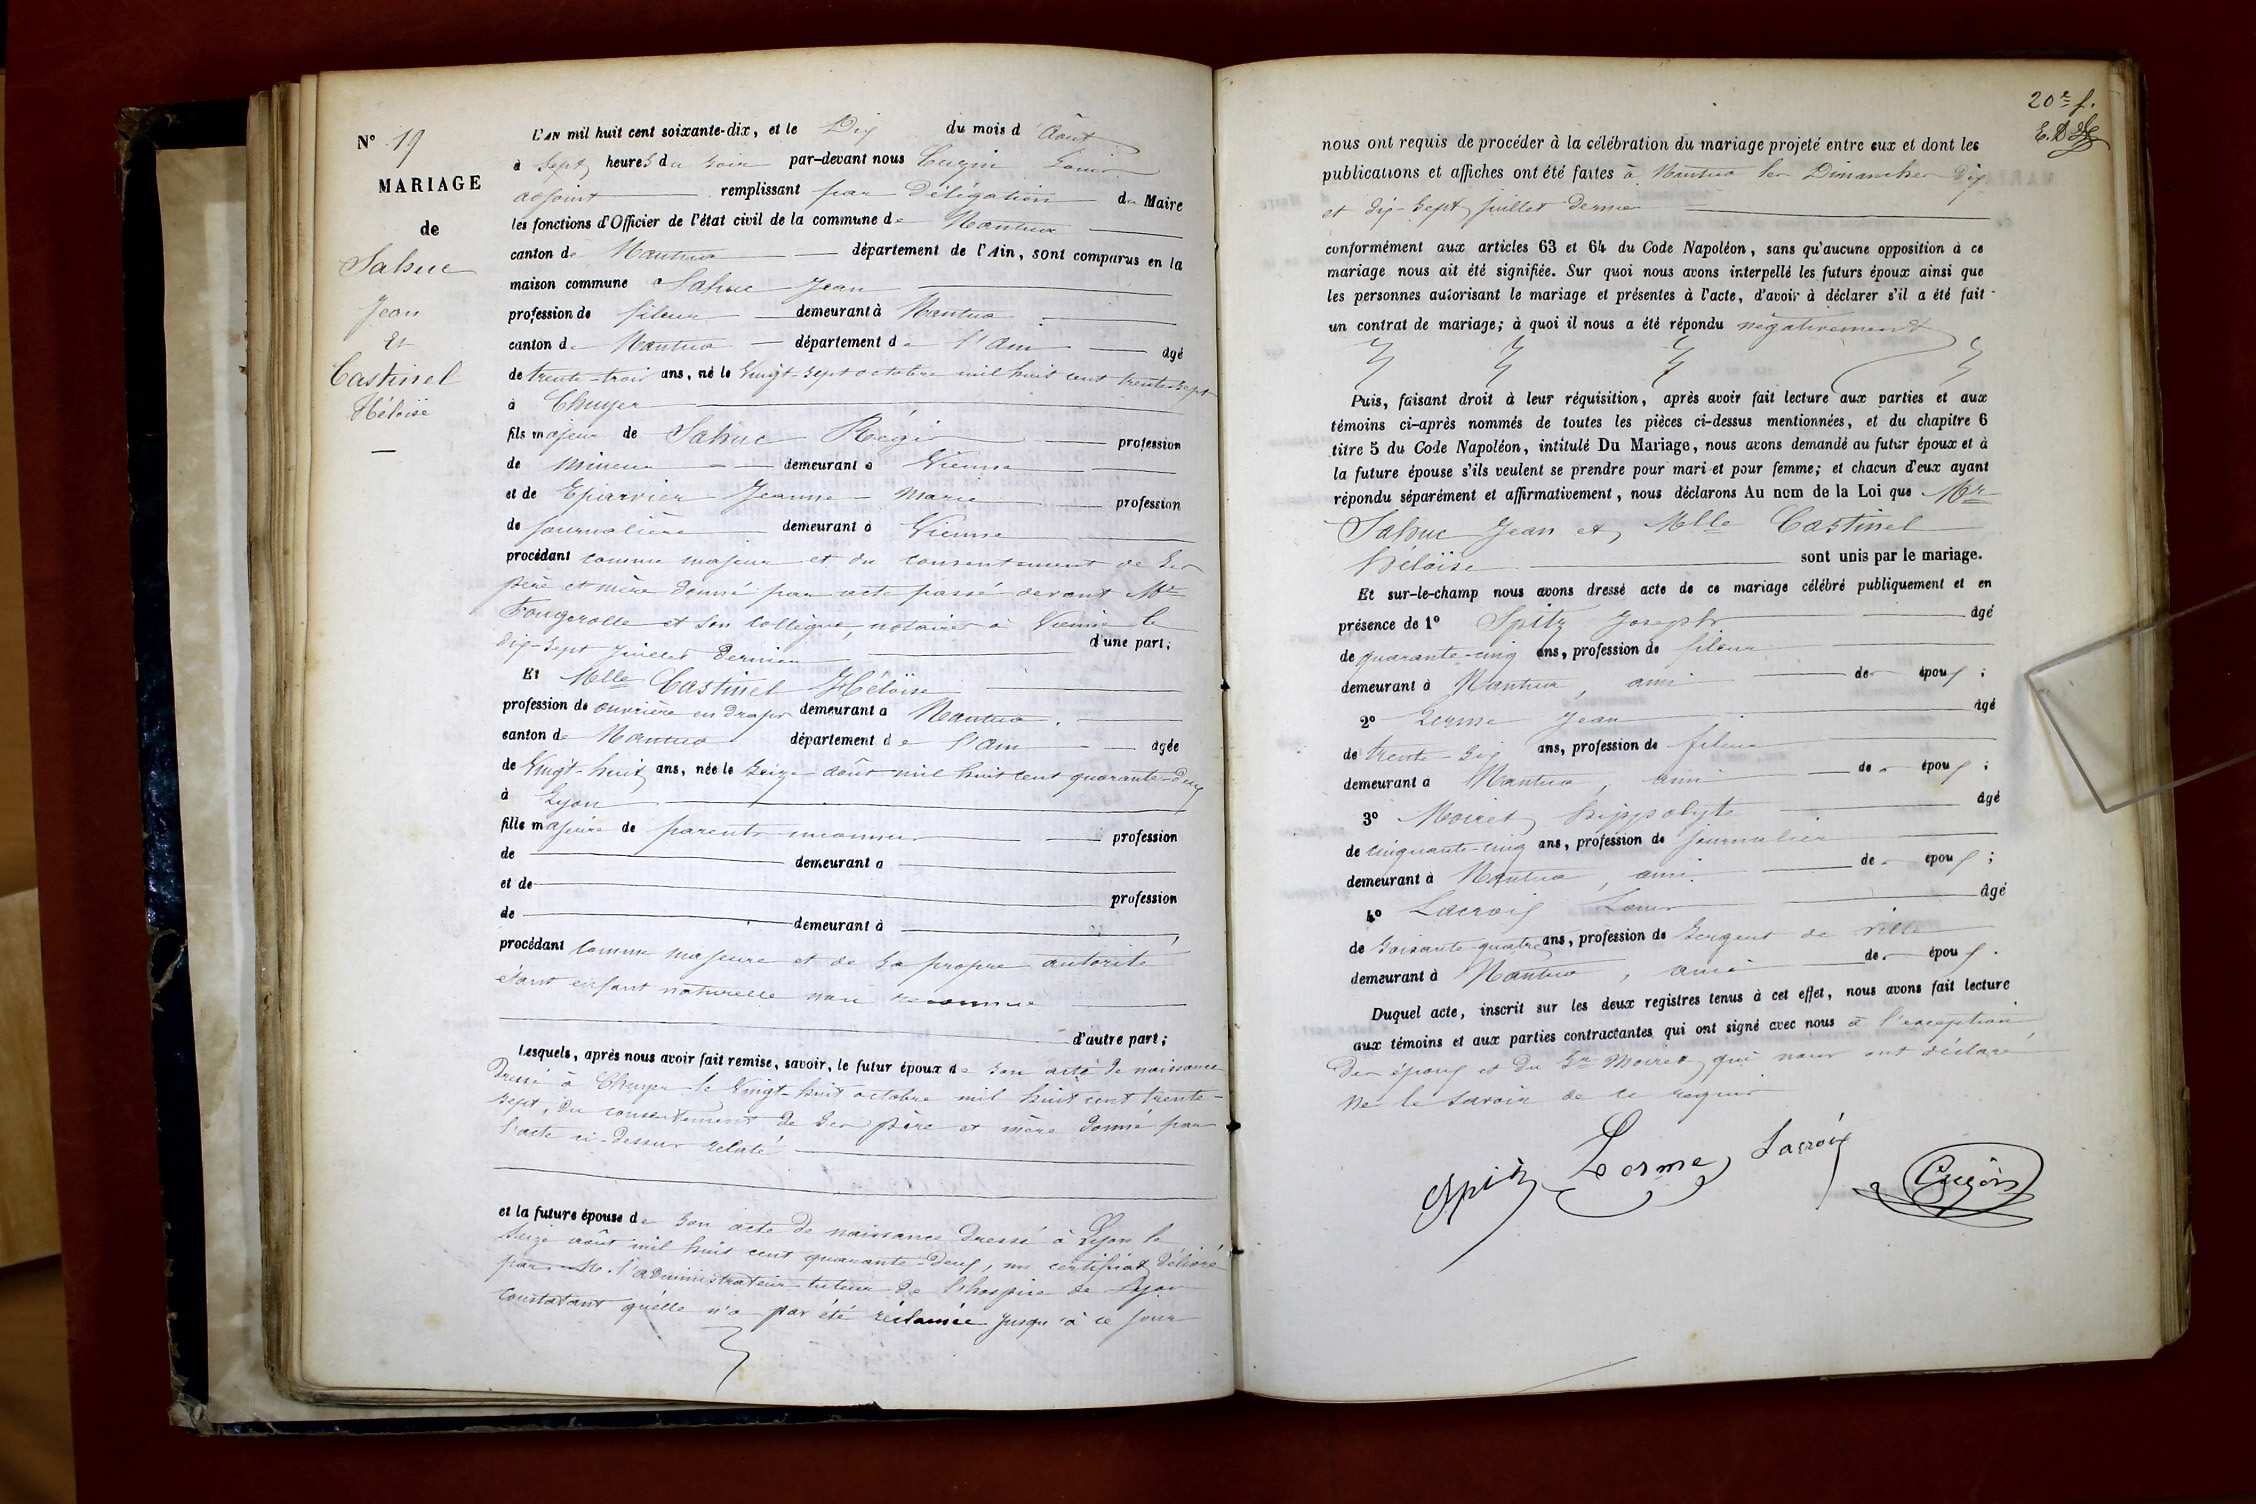 N° 19
MARIAGE
de
Sahuc
Jean
Et
Castinel
Héloïse
L'AN mil huit cent soixante-dix, et le Dix du mois d'Août
à sept heures du soir par-devant nous Cugin Louis
adjoint remplissant par Délégation du Maire
les fonctions d'Officier de l'état civil de la commune de Nantua
canton de Nantua département de l'Ain, sont comparus en la
maison commune Sahuc Jean
profession de fileur demeurant à Nantua
canton de Nantua département de l'Ain âgé
de trente-trois ans, né le Vingt-sept octobre mil huit cent trente-sept
à Chuyer
fils majeur de Sahuc Régis profession
de mineur demeurant à Vienne
et de Eparvier Jeanne-Marie profession
de journalière demeurant à Vienne
procédant comme majeur et du consentement de ses
père et mère donné par acte passé devant Me
Fougerolle et son collègue, notaires à Vienne le
dix-sept juillet dernier d'une part;
Et Melle Castinel Héloïse
profession de ouvrière en draps demeurant à Nantua.
canton de Nantua département de l'Ain âgée
de Vingt-huit ans, née le seize août mil huit cent quarante-deux
à Lyon
fille majeure de parents inconnus profession
de demeurant à
et de profession
de demeurant à
procédant comme majeure et de sa propre autorité
étant enfant naturelle non reconnue
d'autre part;
Lesquels, après nous avoir fait remise, savoir, le futur époux de son acte de naissance
dressé à Chuyer le Vingt-huit octobre mil huit cent trente-
sept, du consentement de ses père et mère donné par
l'acte ci-dessus relaté
et la future épouse de son acte de naissance dressé à Lyon le
seize août mil huit cent quarante-deux, un certificat délivré
par M. l'administrateur-tuteur de l'hospice de Lyon
constatant qu'elle n'a pas été réclamée jusqu'à ce jour
20e f.
nous ont requis de procéder à la célébration du mariage projeté entre eux et dont les
publications et affiches ont été faites à Nantua les Dimanches Dix
et dix-sept juillet dernier
conformément aux articles 63 et 64 du Code Napoléon, sans qu'aucune opposition à ce
mariage nous ait été signifiée. Sur quoi nous avons interpellé les futurs époux ainsi que
les personnes autorisant le mariage et présentes à l'acte, d'avoir à déclarer s'il a été fait
un contrat de mariage; à quoi il nous a été répondu négativement
Puis, faisant droit à leur réquisition, après avoir fait lecture aux parties et aux
témoins ci-après nommés de toutes les pièces ci-dessus mentionnées, et du chapitre 6
titre 5 du Code Napoléon, intitulé Du Mariage, nous avons demandé au futur époux et à
la future épouse s'ils veulent se prendre pour mari et pour femme; et chacun d'eux ayant
répondu séparément et affirmativement, nous déclarons Au nom de la Loi que Mr
Sahuc Jean et Melle Castinel
Héloïse sont unis par le mariage.
Et sur-le-champ nous avons dressé acte de ce mariage célébré publiquement et en
présence de 1° Spitz Joseph âgé
de quarante-cinq ans, profession de fileur
demeurant à Nantua, ami des époux;
2° Lerme Jean âgé
de trente-six ans, profession de fileur
demeurant à Nantua, ami des époux;
3° Moiret hippolyte âgé
de cinquante-cinq ans, profession de journalier
demeurant à Nantua, ami des époux;
4° Lacroix Louis âgé
de soixante-quatre ans, profession de sergent de ville
demeurant à Nantua, ami des époux.
Duquel acte, inscrit sur les deux registres tenus à cet effet, nous avons fait lecture
aux témoins et aux parties contractantes qui ont signé avec nous à l'exception
des époux et du Sr Moiret qui nous ont déclaré
ne le savoir de ce requis
Spitz Lerme Lacroix Cugin